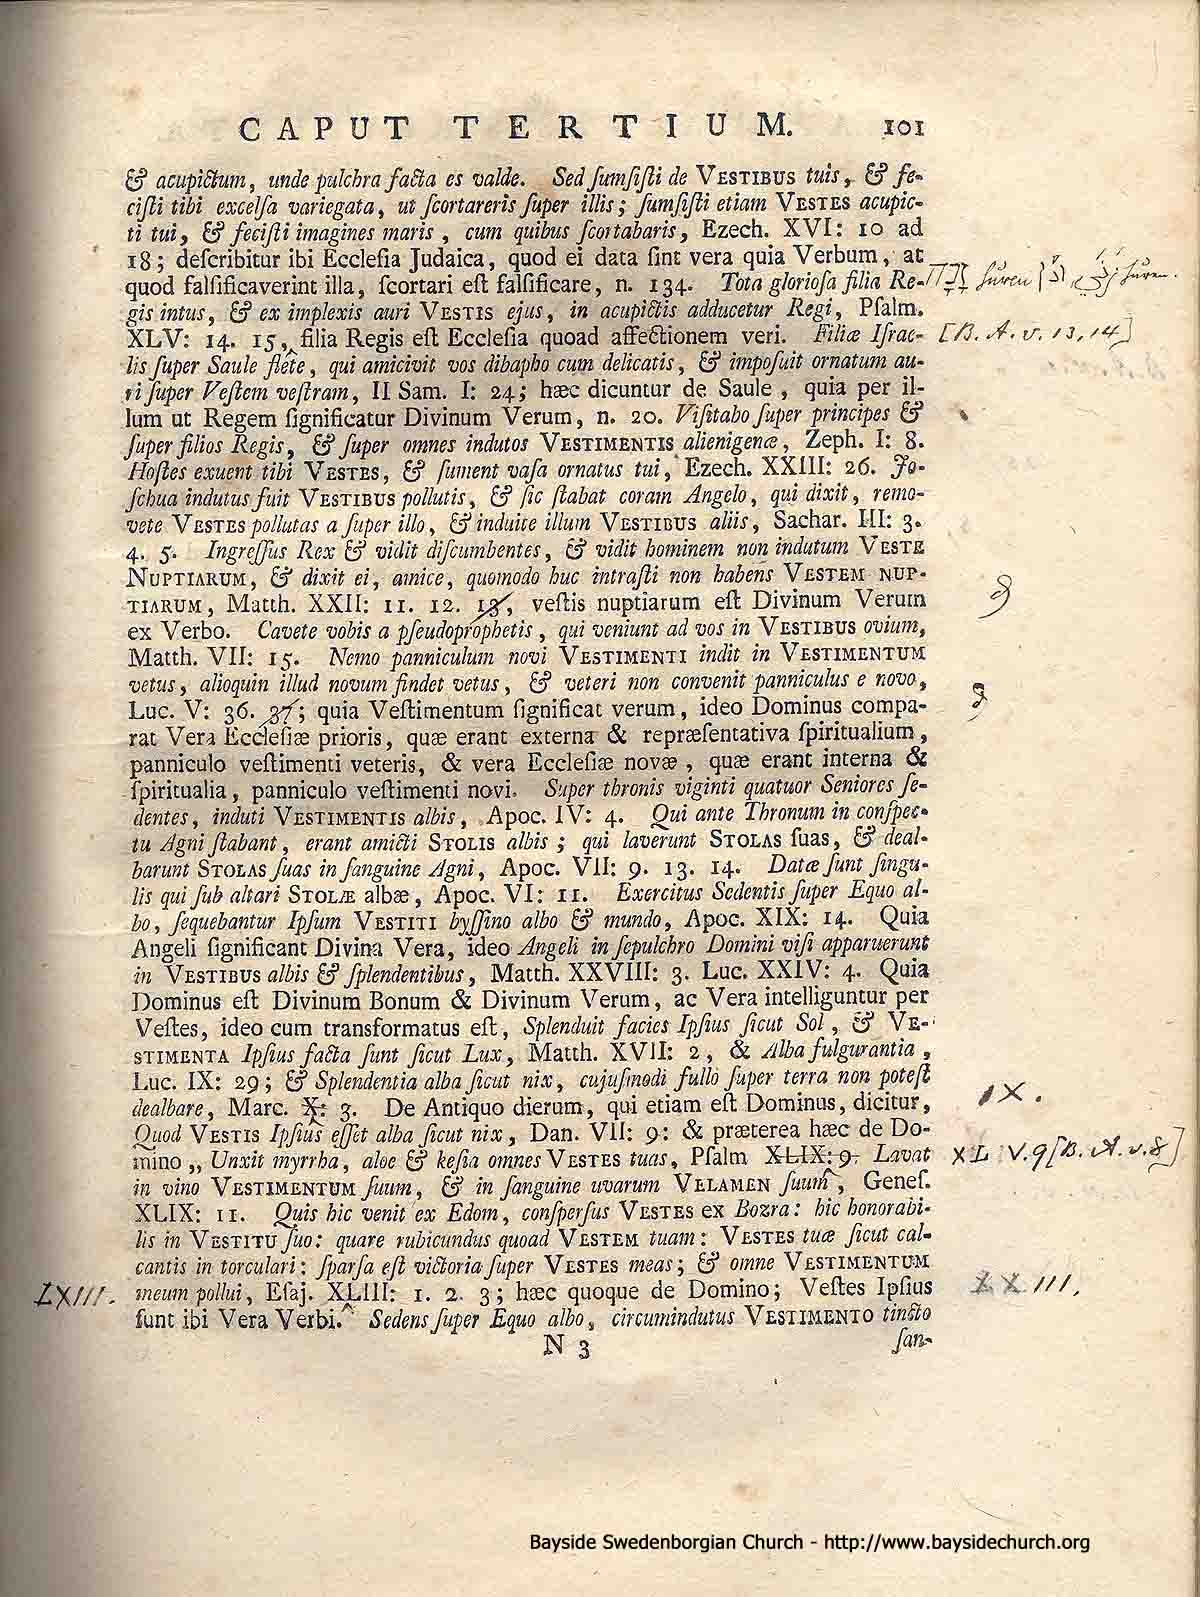 CAPUT TERTIUM. 101
& acupictum, unde pulchra facta es valde. Sed ſumſiſti de VESTIBUS tuis, & fe-
ciſti tibi excelſa variegata, ut ſcortareris ſuper illis; ſumſiſti etiam VESTES acupic-
ti tui, & feciſti imagines maris, cum quibus ſcortabaris, Ezech. XVI: 10 ad
18; deſcribitur ibi Eccleſia Judaica, quod ei data ſint vera quia Verbum, at
quod falſificaverint illa, ſcortari eſt falſificare, n. 134. Tota glorioſa filia Re-
gis intus, & ex implexis auri VESTIS ejus, in acupictis adducetur Regi, Pſalm.
XLV: 14. 15, filia Regis eſt Eccleſia quoad affectionem veri. Filiæ Iſrae-
[B. A. v. 13, 14]
lis ſuper Saule flete, qui amicivit vos dibapho cum delicatis, & impoſuit ornatum au-
ri ſuper Veſtem veſtram, II Sam. I: 24; hæc dicuntur de Saule, quia per il-
lum ut Regem ſignificatur Divinum Verum, n. 20. Viſitabo ſuper principes &
ſuper filios Regis, & ſuper omnes indutos VESTIMENTIS alienigenæ, Zeph. I: 8.
Hoſtes exuent tibi VESTES, & ſument vaſa ornatus tui, Ezech. XXIII: 26. Jo-
ſchua indutus fuit VESTIBUS pollutis, & ſic ſtabat coram Angelo, qui dixit, remo-
vete VESTES pollutas a ſuper illo, & induite illum VESTIBUS aliis, Sachar. III: 3.
4. 5. Ingreſſus Rex & vidit diſcumbentes, & vidit hominem non indutum VESTE
NUPTIARUM, & dixit ei, amice, quomodo huc intraſti non habens VESTEM NUP-
TIARUM, Matth. XXII: 11. 12. 13, veſtis nuptiarum eſt Divinum Verum
ex Verbo. Cavete vobis a pſeudoprophetis, qui veniunt ad vos in VESTIBUS ovium,
Matth. VII: 15. Nemo panniculum novi VESTIMENTI indit in VESTIMENTUM
vetus, alioquin illud novum findet vetus, & veteri non convenit panniculus e novo,
Luc. V: 36. 37; quia Veſtimentum ſignificat verum, ideo Dominus compa-
rat Vera Eccleſiæ prioris, quæ erant externa & repræſentativa ſpiritualium,
panniculo veſtimenti veteris, & vera Eccleſiæ novæ, quæ erant interna &
ſpiritualia, panniculo veſtimenti novi. Super thronis viginti quatuor Seniores ſe-
dentes, induti VESTIMENTIS albis, Apoc. IV: 4. Qui ante Thronum in conſpec-
tu Agni ſtabant, erant amicti STOLIS albis; qui laverunt STOLAS ſuas, & deal-
barunt STOLAS ſuas in ſanguine Agni, Apoc. VII: 9. 13. 14. Datæ ſunt ſingu-
lis qui ſub altari STOLÆ albæ, Apoc. VI: 11. Exercitus Sedentis ſuper Equo al-
bo, ſequebantur Ipſum VESTITI byſſino albo & mundo, Apoc. XIX: 14. Quia
Angeli ſignificant Divina Vera, ideo Angeli in ſepulchro Domini viſi apparuerunt
in VESTIBUS albis & ſplendentibus, Matth. XXVIII: 3. Luc. XXIV: 4. Quia
Dominus eſt Divinum Bonum & Divinum Verum, ac Vera intelliguntur per
Veſtes, ideo cum transformatus eſt, Splenduit facies Ipſius ſicut Sol, & VE-
STIMENTA Ipſius facta ſunt ſicut Lux, Matth. XVII: 2, & Alba fulgurantia,
Luc. IX: 29; & Splendentia alba ſicut nix, cujuſmodi fullo ſuper terra non poteſt
dealbare, Marc. X: 3. De Antiquo dierum, qui etiam eſt Dominus, dicitur, IX.
Quod VESTIS Ipſius eſſet alba ſicut nix, Dan. VII: 9: & præterea hæc de Do-
mino,, Unxit myrrha, aloe & keſia omnes VESTES tuas, Pſalm XLIX: 9. Lavat XLV. 9 [B. A. v. 8]
in vino VESTIMENTUM ſuum, & in ſanguine uvarum VELAMEN ſuum, Geneſ.
XLIX: 11. Quis hic venit ex Edom, conſperſus VESTES ex Bozra: hic honorabi-
lis in VESTITU ſuo: quare rubicundus quoad VESTEM tuam: VESTES tuæ ſicut cal-
cantis in torculari: ſparſa eſt victoria ſuper VESTES meas; & omne VESTIMENTUM
LXIII. meum pollui, Eſaj. XLIII: 1. 2. 3; hæc quoque de Domino; Veſtes Ipſius LXIII.
ſunt ibi Vera Verbi. Sedens ſuper Equo albo, circumindutus VESTIMENTO tincto
N 3 ſan-
Bayside Swedenborgian Church - http://www.baysidechurch.org